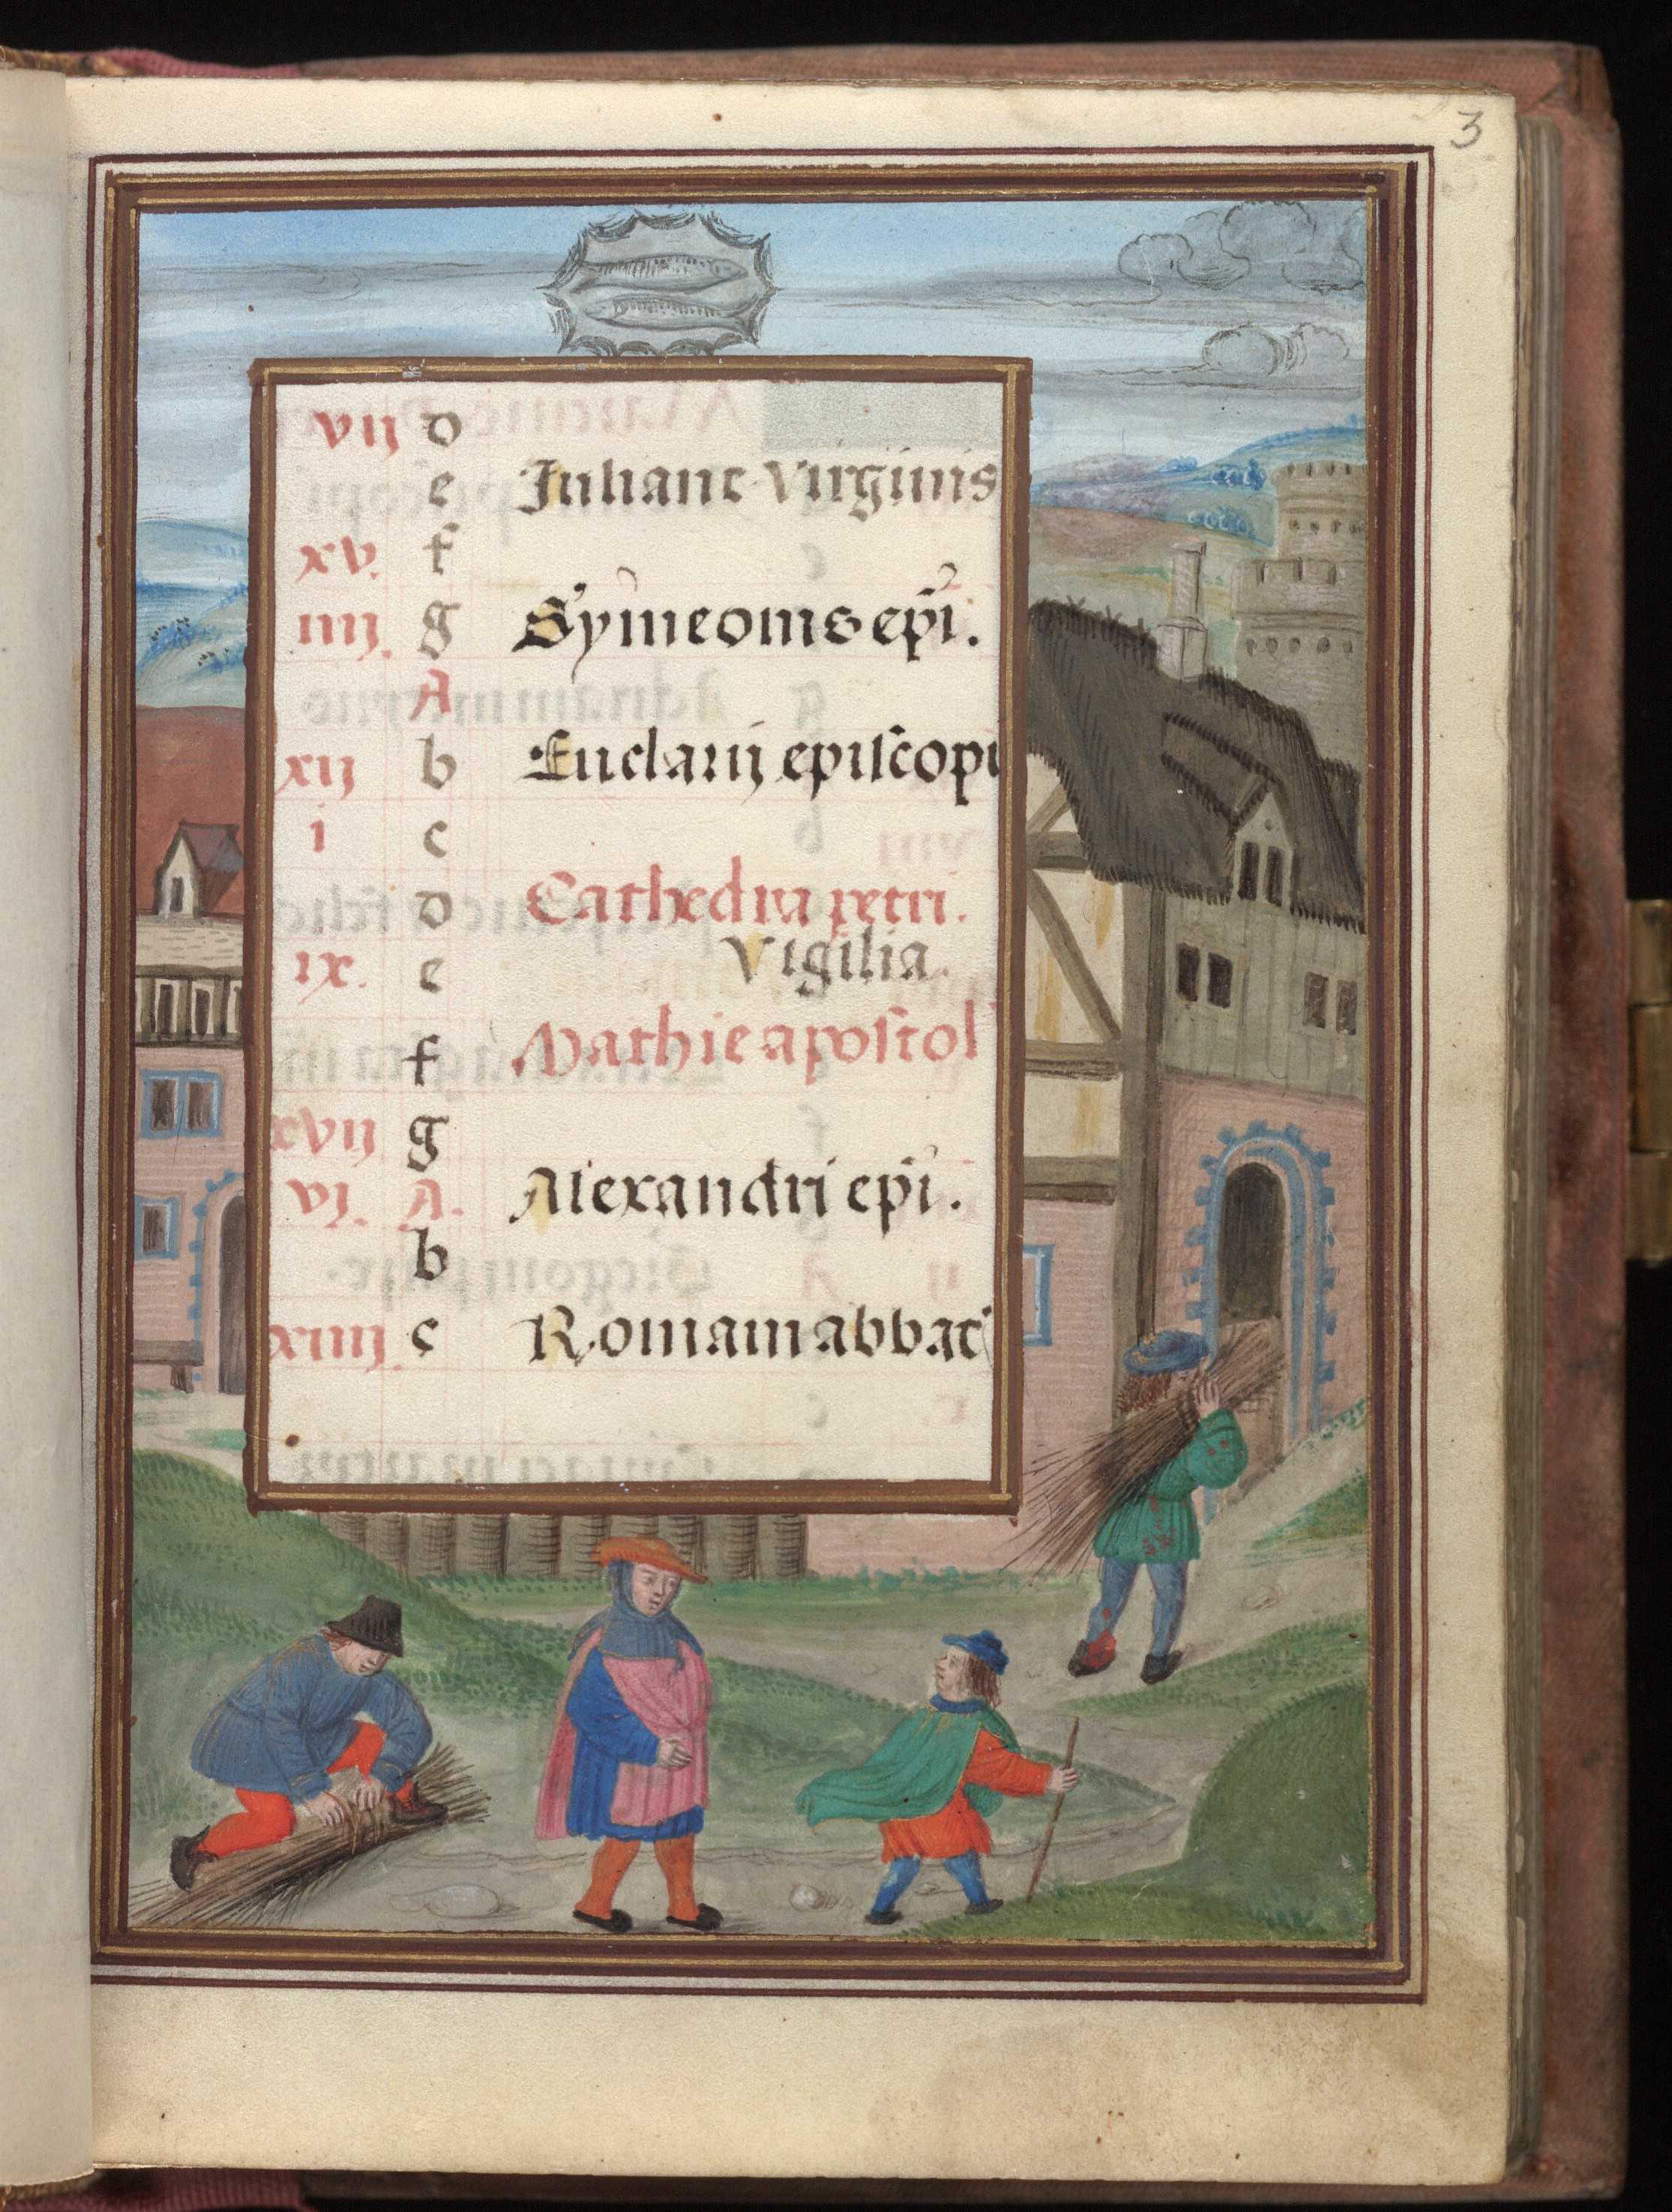 3
vij d
e Juliane virginis
xv. f
iiij. g Symeonis ep̄i.
A
xij b Eucharij episcopi
i c
d Cathedra petri.
ix. e Vigilia.
f Mathie apostol'
xvij g
vj. A. Alexandri ep̄i.
b
xiiij. c Romani abbat'